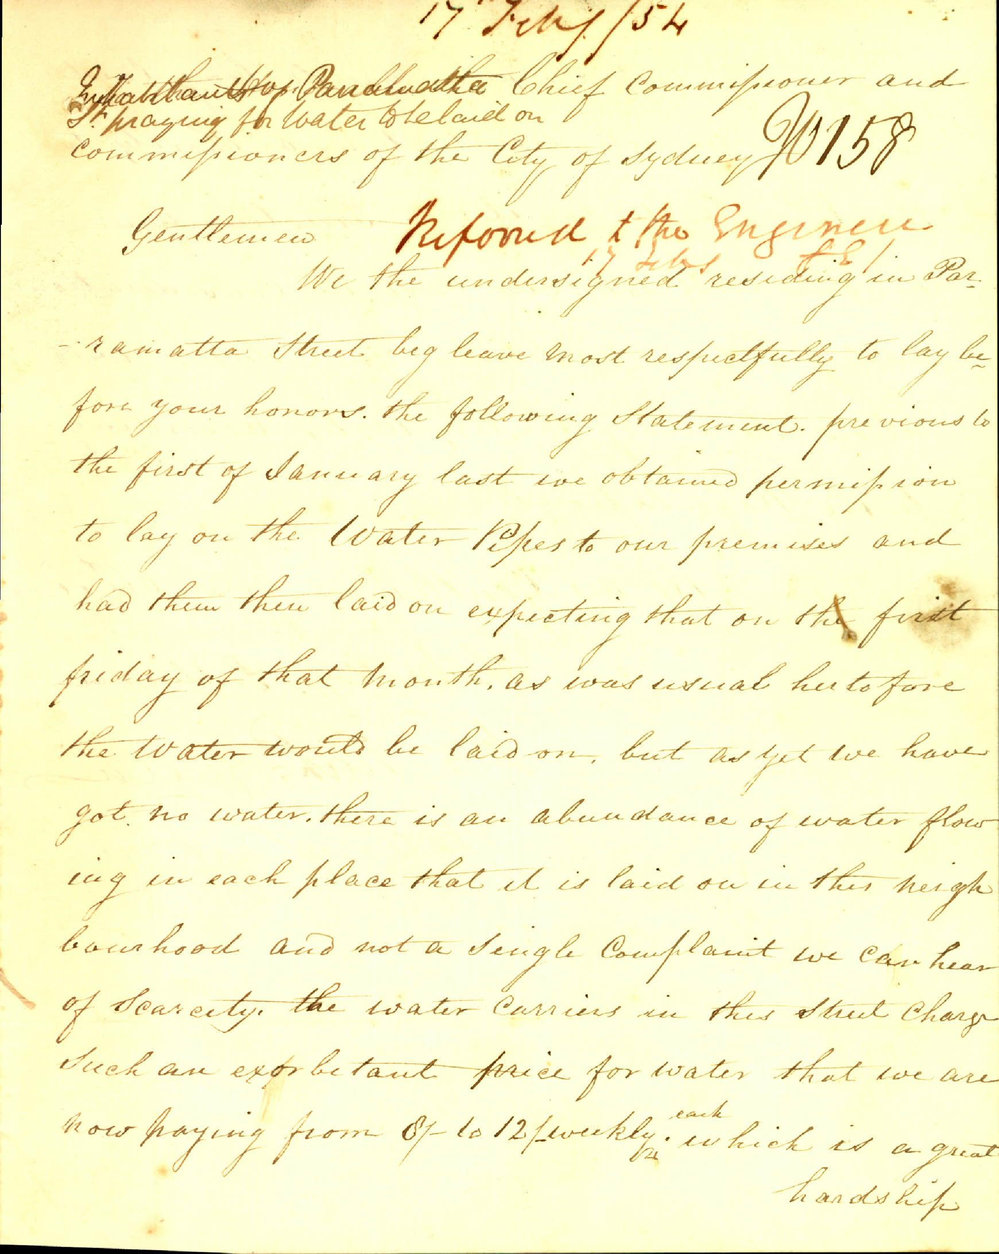 17th Feby /54
Inhabitants of Parramatta
St. praying for water to be laid on
To the Chief Commissioner and
Commissioners of the City of Sydney
No 158
Gentlemen
Referred to the Engineer
17 Feby
We the undersigned residing in Par-
-ramatta Street beg leave most respectfully to lay be-
fore your honors. the following Statement. previous to
the first of January last we obtained permission
to lay on the Water Pipes to our premises and
had them then laid on expecting that on the first
friday of that Month. as was usual hertofore
the Water would be laid on, but as yet we have
got no water. there is an abundance of water flow
ing in each place that it is laid on in this neigh
bourhood and not a Single Complaint we can hear
of Scarcety. the water Carriers in this Street Charge
Such an exorbetant price for water that we are
now paying from 8/- to 12/- weekly each which is a great
hardship